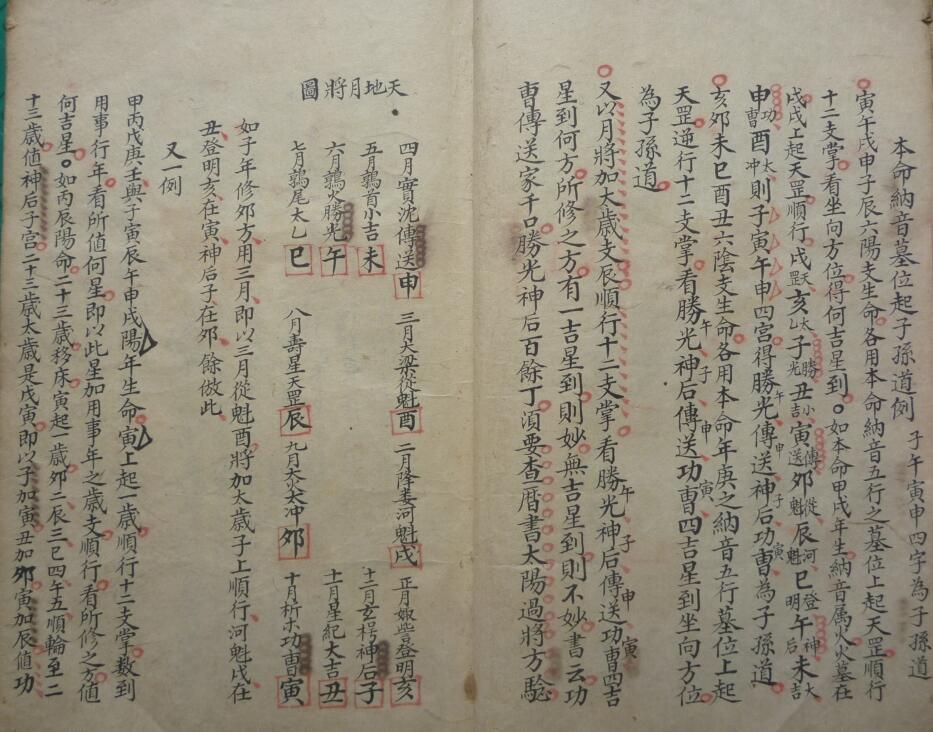 本命納音墓位起子孫道例 子午寅申四字為子孫道
寅午戌申子辰六陽支生命各用本命納音五行之墓位上起天罡順行
十二支掌看坐向方位得何吉星到。如本命甲戌年生納音属火火墓在
戌戌上起天罡順行戌天罡亥太乙子勝光丑小吉寅傳送卯從魁辰河魁巳登明午神后未大吉
申功曹酉太冲則子寅午申四宮得勝光傳送神后功曹為子孫道
亥卯未巳酉丑六陰支生命各用本命年庚之納音五行墓位上起
天罡逆行十二支掌看勝光午神后子傳送申功曹寅四吉星到坐向方位
為子孫道
又以月將加太歲支辰順行十二支掌看勝光午神后子傳送申功曹寅四吉
星到何方所修之方有一吉星到則妙無吉星到則不妙書云功
曹傳送家千口勝光神后百餘丁湏要查曆書太陽過將方騐
天地月將圖
四月實沈傳送申 三月大梁從魁酉 二月降婁河魁戌 正月娵訾登明亥
五月鶉首小吉未 十二月玄枵神后子
六月鶉火勝光午 十一月星紀大吉丑
七月鶉尾太乙巳 八月壽星天罡辰 九月大火太冲卯 十月析木功曹寅
如子年修卯方用三月即以三月從魁酉將加太歲子上順行河魁戌在
丑登明亥在寅神后子在卯 餘倣此
又一例
甲丙戊庚壬與子寅辰午申戌陽年生命寅上起一歲順行十二支掌数到
用事行年看所值何星即以此星加用事年之歲支順行看所修之方值
何吉星。如丙辰陽命二十三歲移床寅起一歲卯二辰三巳四午五順輪至二
十三歲值神后子宮二十三歲太歲是戊寅即以子加寅丑加卯寅加辰值功